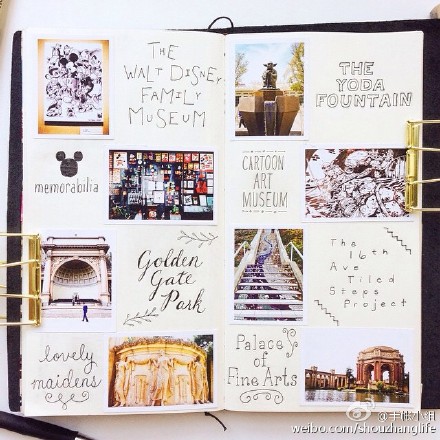 THE
WALT DISNEY
FAMILY
MUSEUM
THE
YODA
FOUNTAIN
memorabilia
CARTOON
ART
MUSEUM
Golden
Gate
Park
The
16th
Ave
Tiled
Steps
Project
lovely
maidens
Palace
of
Fine Arts
@手帐小组
weibo.com/shouzhanglife